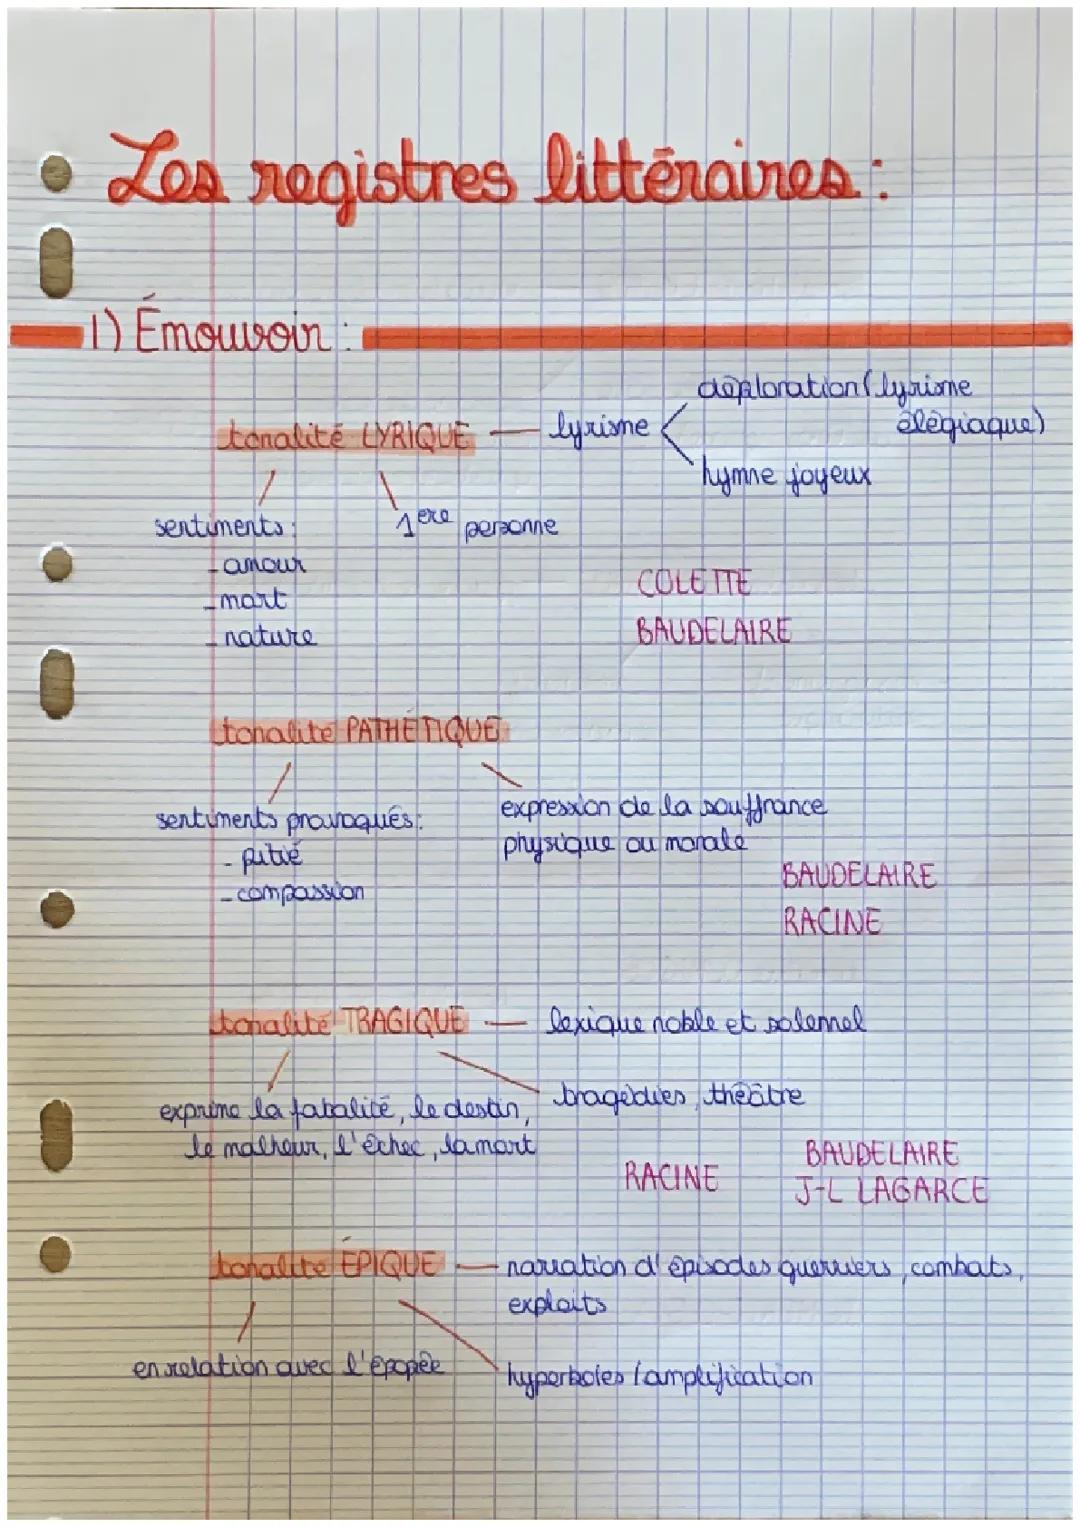 Les registres littéraires :
1) Émouvoir :
déploration (lyrisme
élégiaque)
tonalité LYRIQUE — lyrisme <
hymne joyeux
sentiments :
1ere personne
- amour
- mort
- nature
COLETTE
BAUDELAIRE
tonalité PATHÉTIQUE
sentiments provoqués :
- pitié
- compassion
expression de la souffrance
physique ou morale
BAUDELAIRE
RACINE
tonalité TRAGIQUE — lexique noble et solennel
exprime la fatalité, le destin,
le malheur, l'échec, la mort
tragédies, théâtre
RACINE
BAUDELAIRE
J-L LAGARCE
tonalité ÉPIQUE — narration d'épisodes guerriers, combats,
exploits
en relation avec l'épopée
hyperboles / amplification